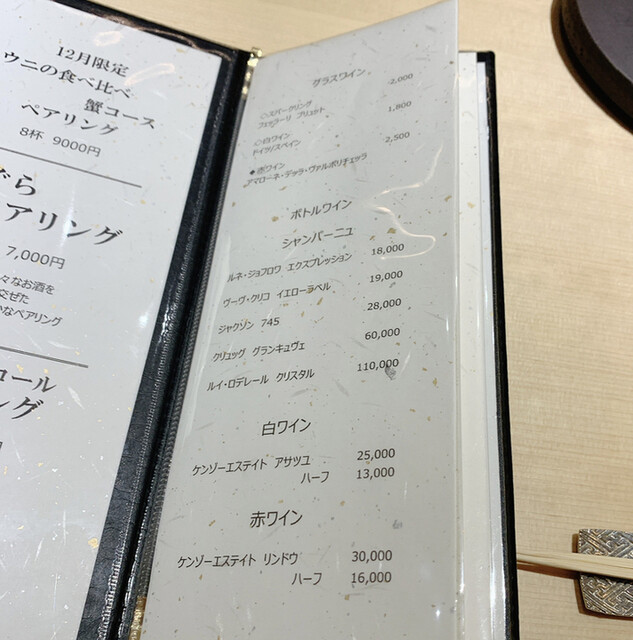 12月限定
ウニの食べ比べ
蟹コース
ペアリング
8杯 9000円
アリング
7,000円
々なお酒を
交ぜた
かなペアリング
コール
ング
グラスワイン
○スパークリング 2,000
フェッラーリ ブリュット
○白ワイン 1,800
ドイツ/スペイン
●赤ワイン 2,500
アマローネ・デッラ・ヴァルポリチェッラ
ボトルワイン
シャンパーニュ
ルネ・ジョフロワ エクスプレッション 18,000
ヴーヴ・クリコ イエローラベル 19,000
ジャクソン 745 28,000
クリュッグ グランキュヴェ 60,000
ルイ・ロデレール クリスタル 110,000
白ワイン
ケンゾーエステイト アサツユ 25,000
ハーフ 13,000
赤ワイン
ケンゾーエステイト リンドウ 30,000
ハーフ 16,000